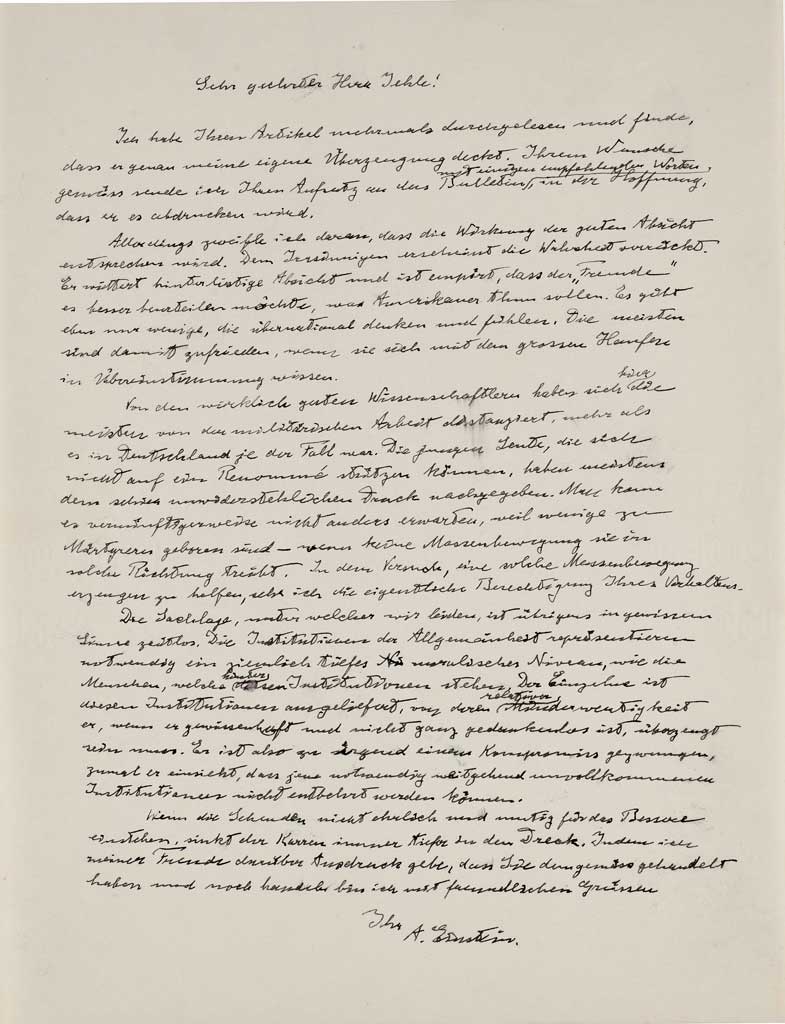 Sehr geehrter Herr Jehle!
Ich habe Ihren Artikel mehrmals durchgelesen und finde,
dass er genau meine eigene Überzeugung deckt. Ihrem Wunsche
mit einigen empfehlenden Worten,
gemäss sende ich Ihren Aufsatz an das Bulletin, in der Hoffnung,
dass er es abdrucken wird.
Allerdings zweifle ich daran, dass die Wirkung der guten Absicht
entsprechen wird. Dem Irrsinnigen erscheint die Wahrheit verrückt.
Er wittert hinterlistige Absicht und ist empört, dass der „Fremde"
es besser beurteilen möchte, was Amerikaner thun sollen. Es gibt
eben nur wenige, die übernational denken und fühlen. Die meisten
sind damit zufrieden, wenn sie sich mit dem grossen Haufen
in Übereinstimmung wissen.
hier
Von den wirklich guten Wissenschaftlern haben sich die
meisten von der militärischen Arbeit distanziert, mehr als
es in Deutschland je der Fall war. Die jungen Leute, die sich
nicht auf ein Renommé stützen können, haben meistens
dem schier unwiderstehlichen Druck nachgegeben. Man kann
es vernünftigerweise nicht anders erwarten, weil wenige zu
Märtyrern geboren sind — wenn keine Massenbewegung sie in
solche Richtung treibt. In dem Versuch, eine solche Massenbewegung
erzeugen zu helfen, sehe ich die eigentliche Berechtigung Ihres Verhaltens.
Die Sachlage, unter welcher wir leiden, ist übrigens in gewissem
Sinne zeitlos. Die Institutionen der Allgemeinheit repräsentieren
notwendig ein ziemlich tiefes moralisches Niveau, wie die
hinter
Menschen, welche diesen Institutionen stehen. Der Einzelne ist
relativer
diesen Institutionen ausgeliefert, von deren Minderwertigkeit
er, wenn er gewissenhaft und nicht ganz gedankenlos ist, überzeugt
sein muss. Er ist also zu irgend einem Kompromiss gezwungen,
zumal er einsieht, dass jene notwendig weitgehend unvollkommenen
Institutionen nicht entbehrt werden können.
Wenn die Sehenden nicht ehrlich und mutig für das Bessere
einstehen, sinkt der Karren immer tiefer in den Dreck. Indem ich
meiner Freude darüber Ausdruck gebe, dass Sie demgemäss gehandelt
haben und noch handeln bin ich mit freundlichen Grüssen
Ihr
A. Einstein.